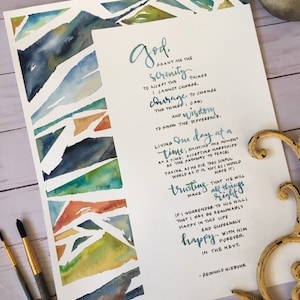 God,
GRANT ME THE
serenity
TO ACCEPT THE THINGS
I CANNOT CHANGE,
courage TO CHANGE
THE THINGS I CAN,
AND wisdom
TO KNOW THE DIFFERENCE.
LIVING one day at a
time; ENJOYING ONE MOMENT
AT A TIME; ACCEPTING HARDSHIPS
AS THE PATHWAY TO PEACE;
TAKING, AS HE DID, THIS SINFUL
WORLD AS IT IS, NOT AS I WOULD
HAVE IT;
trusting THAT HE WILL
MAKE all things
right
IF I SURRENDER TO HIS WILL;
THAT I MAY BE REASONABLY
HAPPY IN THIS LIFE
AND SUPREMELY
happy WITH HIM
FOREVER
IN THE NEXT.
- REINHOLD NIEBUHR